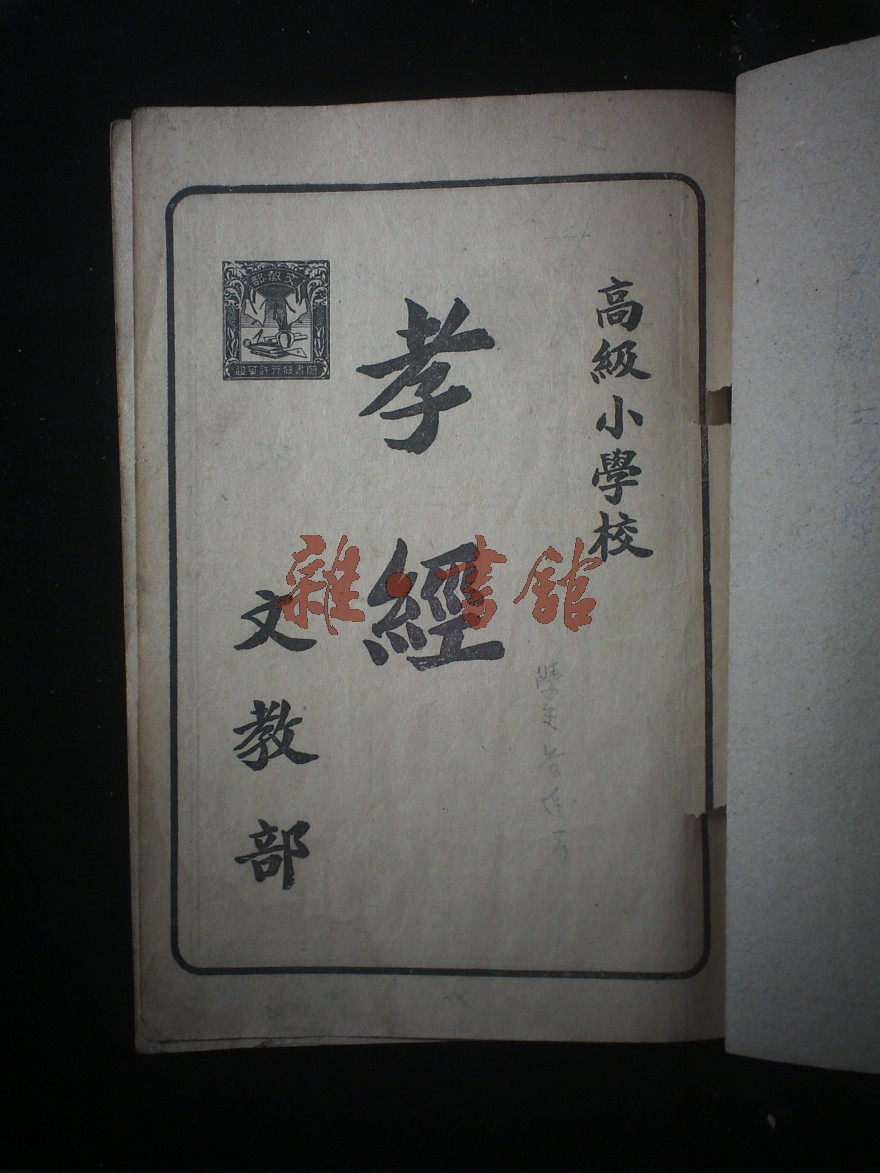 高級小學校
孝經
文教部
文教部
圖書發行許可證
雜·書館